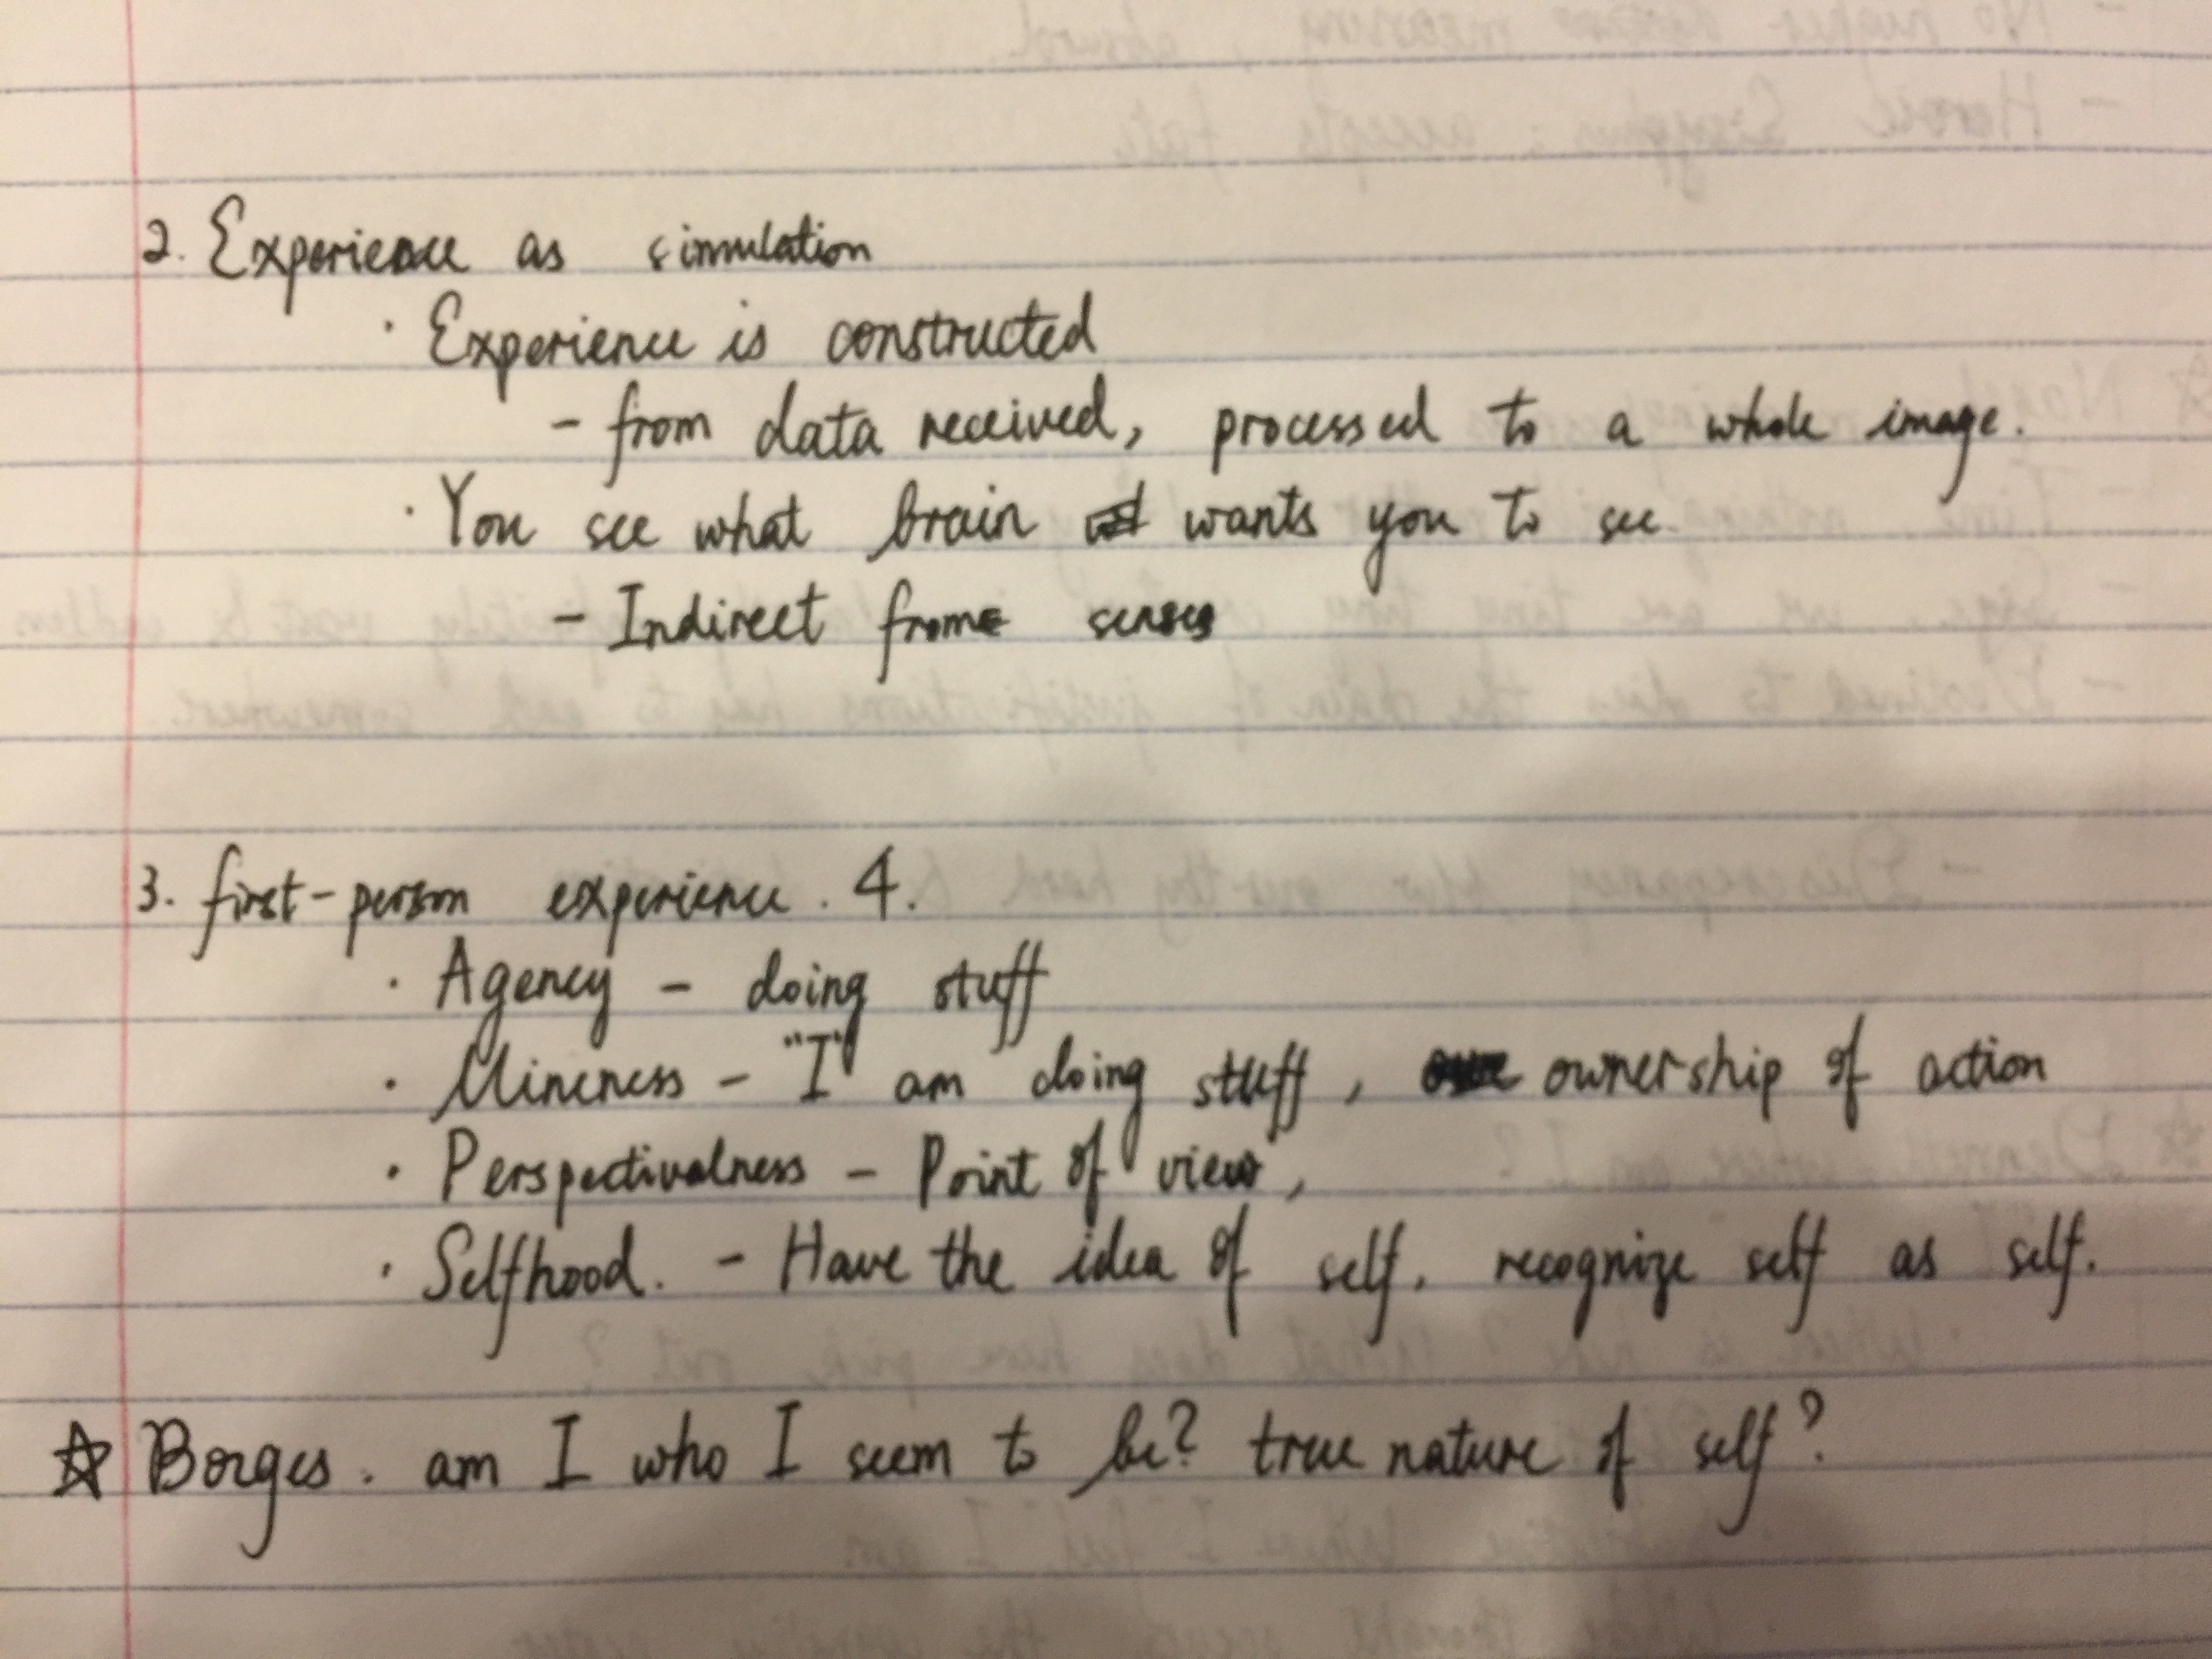 2. Experience as simulation
· Experience is constructed
- from data received, processed to a whole image.
· You see what brain wants you to see
- Indirect from senses
3. first-person experience. 4.
· Agency - doing stuff
· Mineness - "I" am doing stuff, ownership of action
· Perspectivalness - Point of view,
· Selfhood. - Have the idea of self. recognize self as self.
☆ Borges. am I who I seem to be? true nature of self?